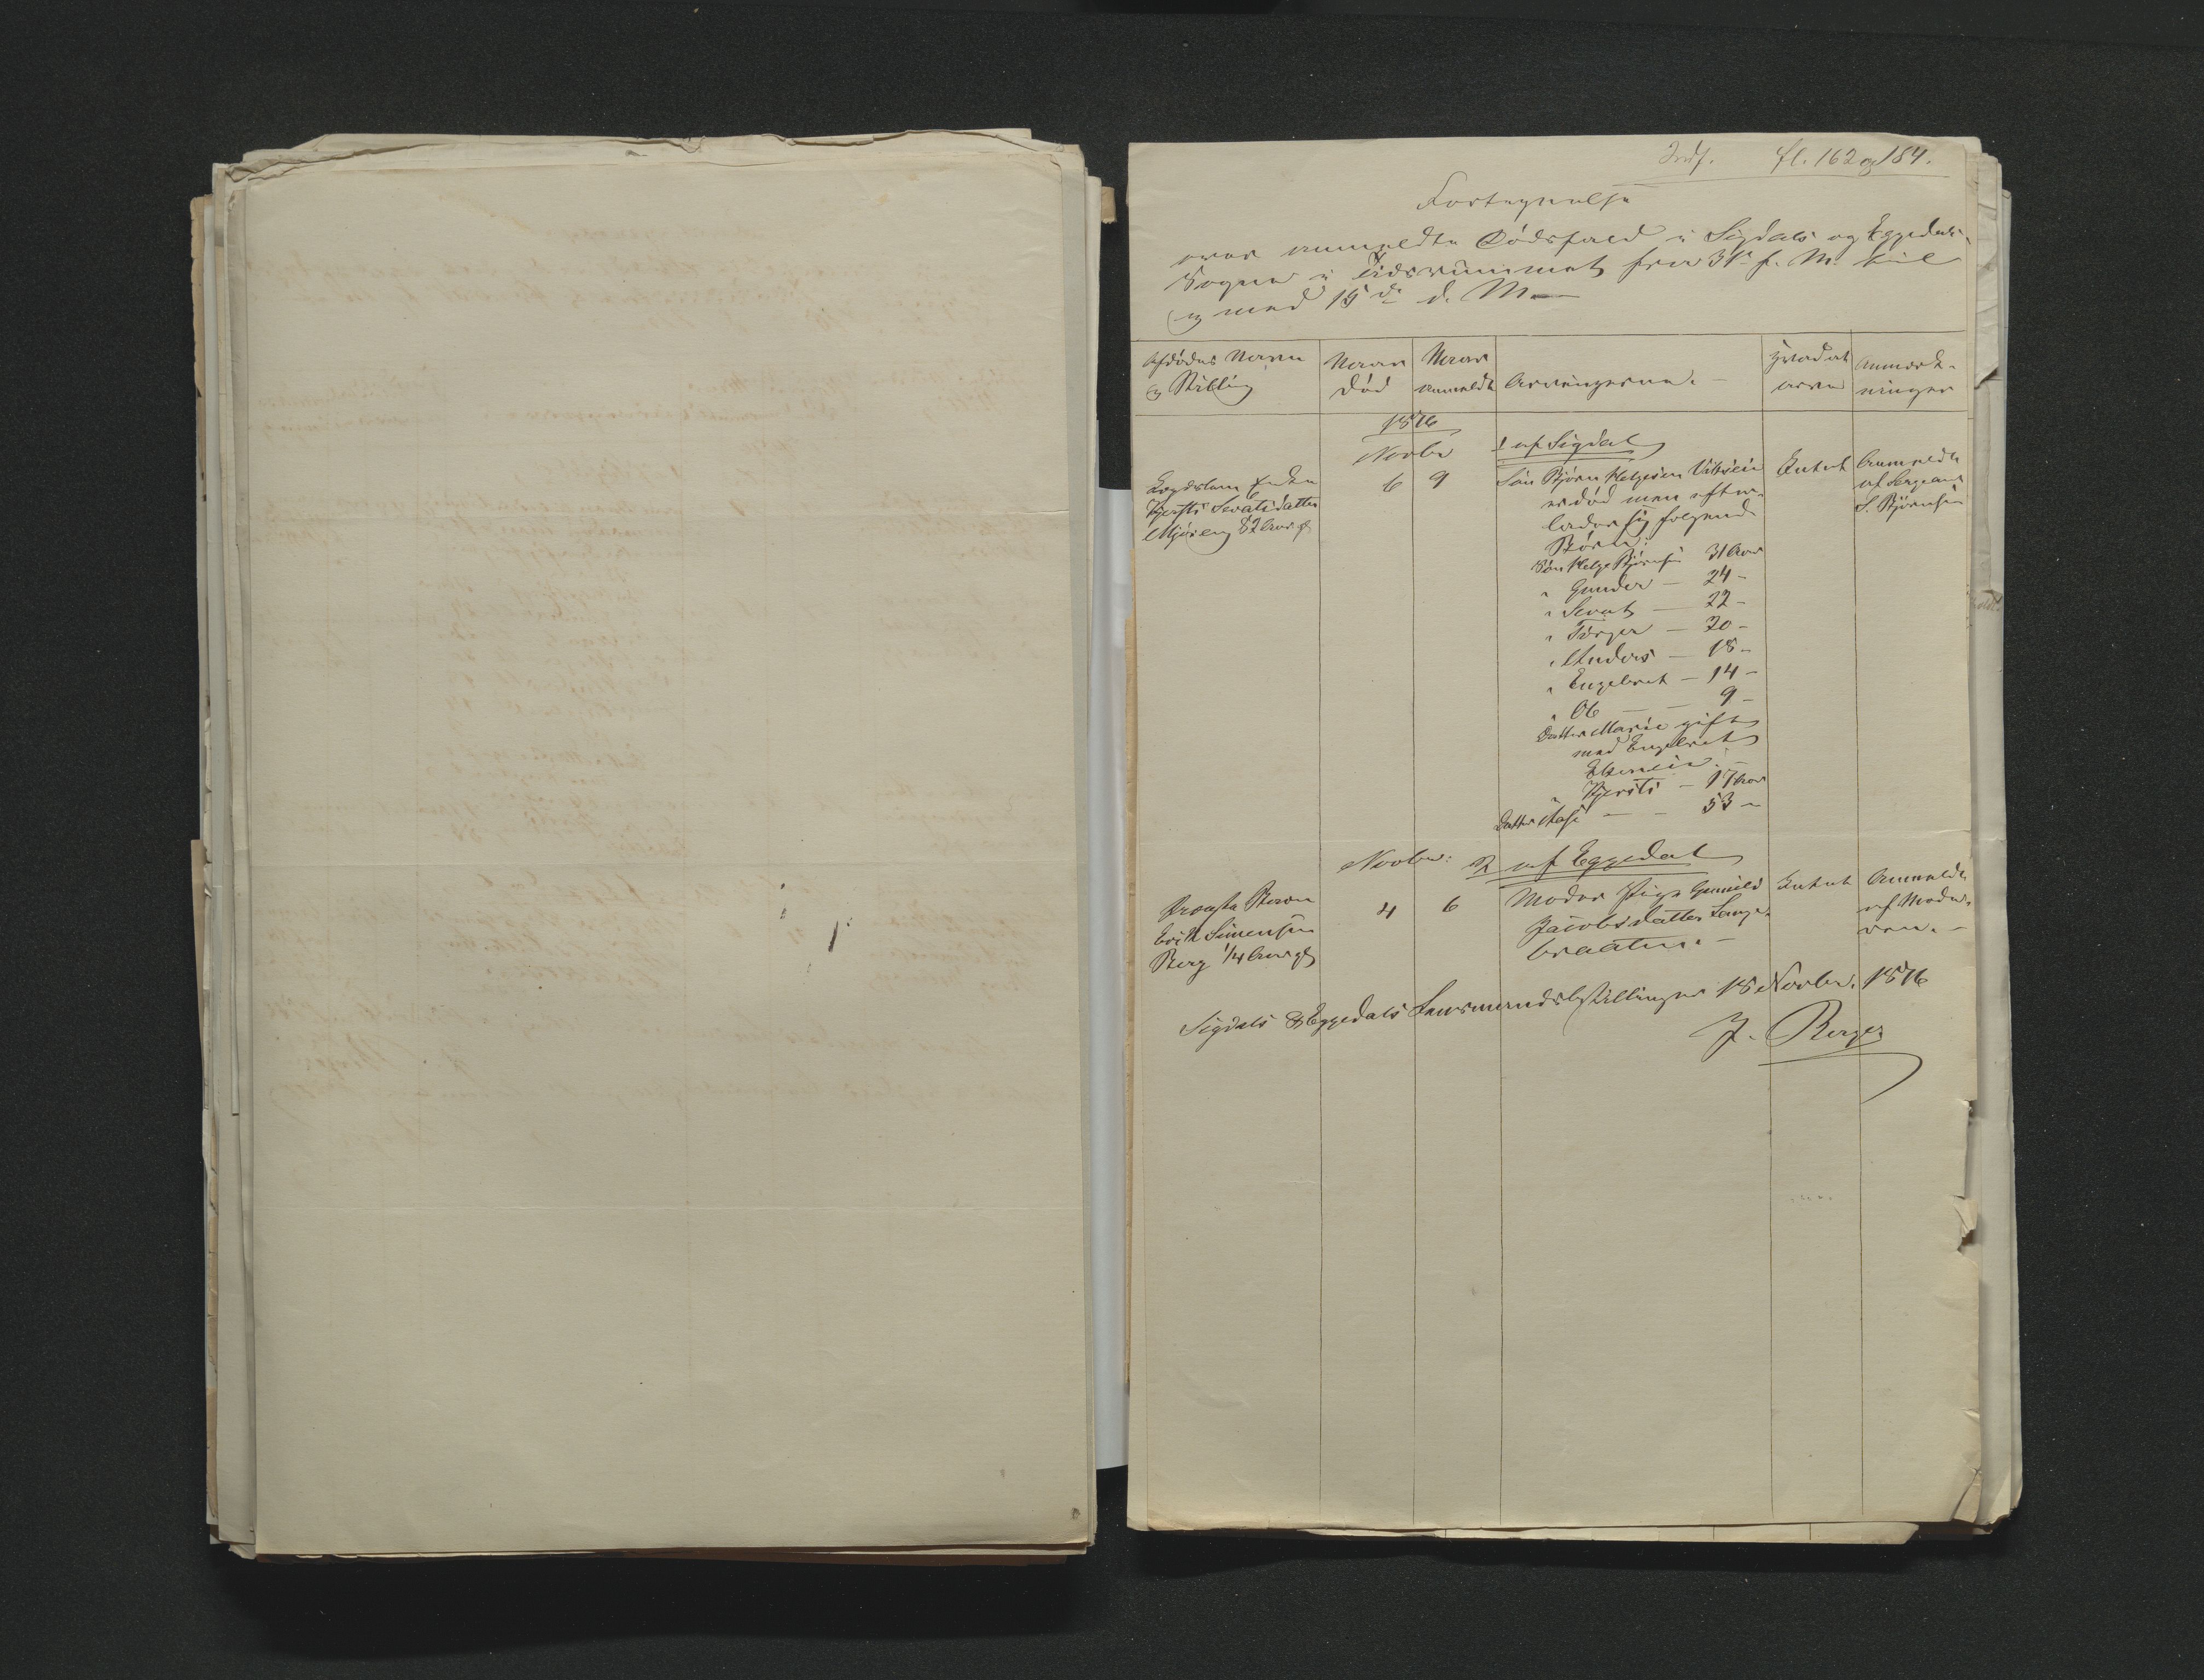 Indf. fl. 162 og 184.
Fortegnelse
over anmeldte Dødsfald i Sigdals og Eggedals
Sogne i Tidsrummet fra 31te f. M. til
og med 15de d. M.
Afdødes Navn
og Stilling
Naar
død
Naar
anmeldt
Arvingerne.
Hvad at
arve
Anmærk-
ninger
1876
Novbr 1 af Sigdal
Lægdslem Enken
Kjersti Sevatsdatter
Mjøseng 82 Aar gl
6
9
Søn Bjørn Helgesen
er død men efter-
lader sig følgende
Børn:
Søn Helge Bjørnsen 31 Aar
" Gunder — 24 –
" Sevat — 22 –
" Torger — 20 –
" Anders — 18 –
" Engebret — 14 –
" Ole — — 9 –
Datter Marie gift
med Engebret
" Kjersti – 17 Aar
Datter Aase — – 53 –
Intet
Anmeldt
af Sergeant
S. Bjørnsen
Novbr: 2 af Eggedal
Uægte Barn
Erik Simensen
Berg 1/4 Aar gl
4
6
Moder Pige Gunild
Jacobsdatter Lange-
braaten. –
Intet
Anmeldt
af Mode-
ren. –
Sigdals & Eggedals Lensmandsbestillinger 18 Novbr. 1876
J. Berger